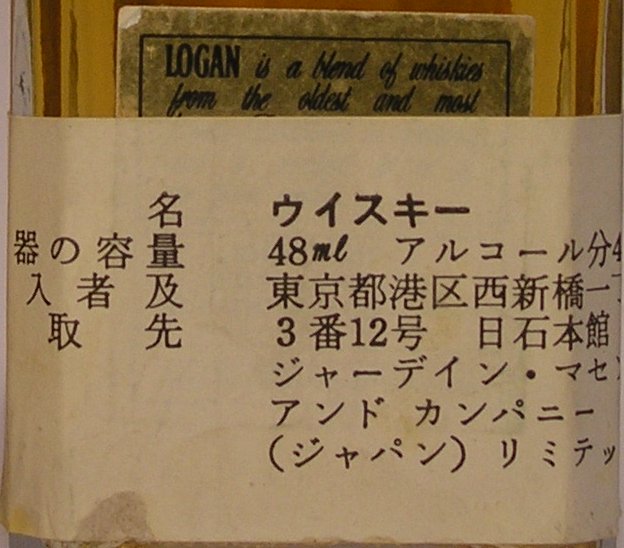 LOGAN is a blend of whiskies
from the oldest and most
名 ウイスキー
器の容量 48ml アルコール分4
入者及 東京都港区西新橋一丁
取先 3番12号 日石本館
ジャーデイン・マセソ
アンド カンパニー
(ジャパン) リミテッ